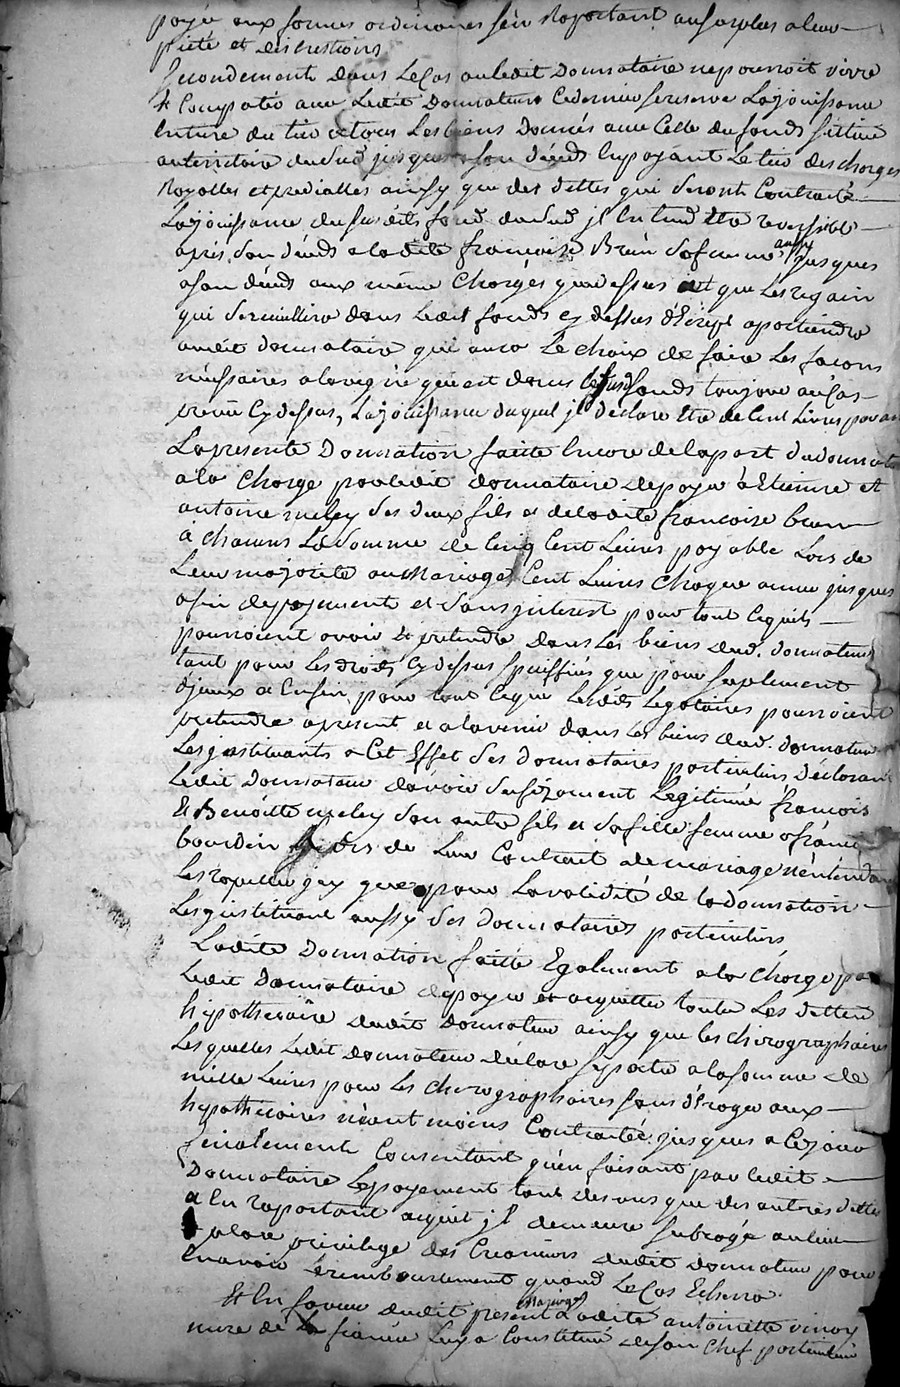 payés aux formes ordinaires s'en Raportant au surplus a leur
pieté et discrestions
Secondement dans Le Cas ou ledit Donnataire ne pourroit vivre
& Compatir avec Ledit Donnateur Ce dernier se reserve La jouissance
du tier de tous Les biens Donnés avec Celle du fonds scittué
au territoire du jusques a son déceds En payant Le tier des charges
Royalles et predialles ainsy que des dettes qui seront Contracté
La jouissance du susdit fond il Entend Etre reversible
après son déceds a ladite francoise Brun sa femme aussy jusques
a son déceds aux meme Charges que dessus et que Les regain
qui se cueillira dans Ledit fonds cy dessus apartiendra
audit donnataire qui aura Le choix de faire Les facons
nécessaires a la vigne qui est dans Le susd fonds toujour au Cas
prevu Cy dessus, La jouissance duquel jl déclare Etre de Cent Livres par an
La presente Donnation faitte Encore de la part du donnat
a la Charge par ledit donnataire de payer a Etienne et
antoine meley ses deux fils et de ladite francoise brun
à chacuns La Somme de Cinq Cent Livres payable Lors de
Leur majorité ou Mariage Cent Livres Chaque année jusques
a fin de payement et sans jnterest pour tout Ce quils
pourroient avoir & pretendre dans Les biens dud. donnateur
tant pour Les droits Cy dessus speciffiés que pour suplement
d'jceux et Enfin pour tout Ce que Lesdits Legataires pourroient
pretendre apresent et a lavenir dans Les biens dud. donnateur
Les jnstituants a Cet Effet ses Donnataires particuliers Déclarant
Ledit Donnateur d'avoir Legitimé francois
Et Benoitte meley son autre fils et sa fille femme a francois
bourdin Lors de Leur Contrait de mariage n'entendant
Les rapeller jcy que pour La validité de la donnation
Les jnstituant aussy ses donnataires particuliers
Ladite Donnation faitte Egalement a la Charge par
Ledit Donnataire de payer et acquitter toutes Les dettes
hypothecaire dudit donnateur ainsy que les chirographaires
Les quelles Ledit donnateur déclare se porter a la somme de
mille Livres pour Les chirographaires sans déroger aux
hypothecaires néantmoins Contractée jusques a Ce jour
finalement Consentant qu'en faisant par ledit
Donnataire Le payement tant des uns que des autres dettes
& En raportant acquit jl demeure subrogé au lieu
place privilege des Creanciers dudit donnateur pour
En avoir Remboursement quand Le Cas Echerra.
Et En faveur dudit present Mariage Ladite antoinette vinoy
mere de La fiancée Luy a Constitué de son Chef particulier